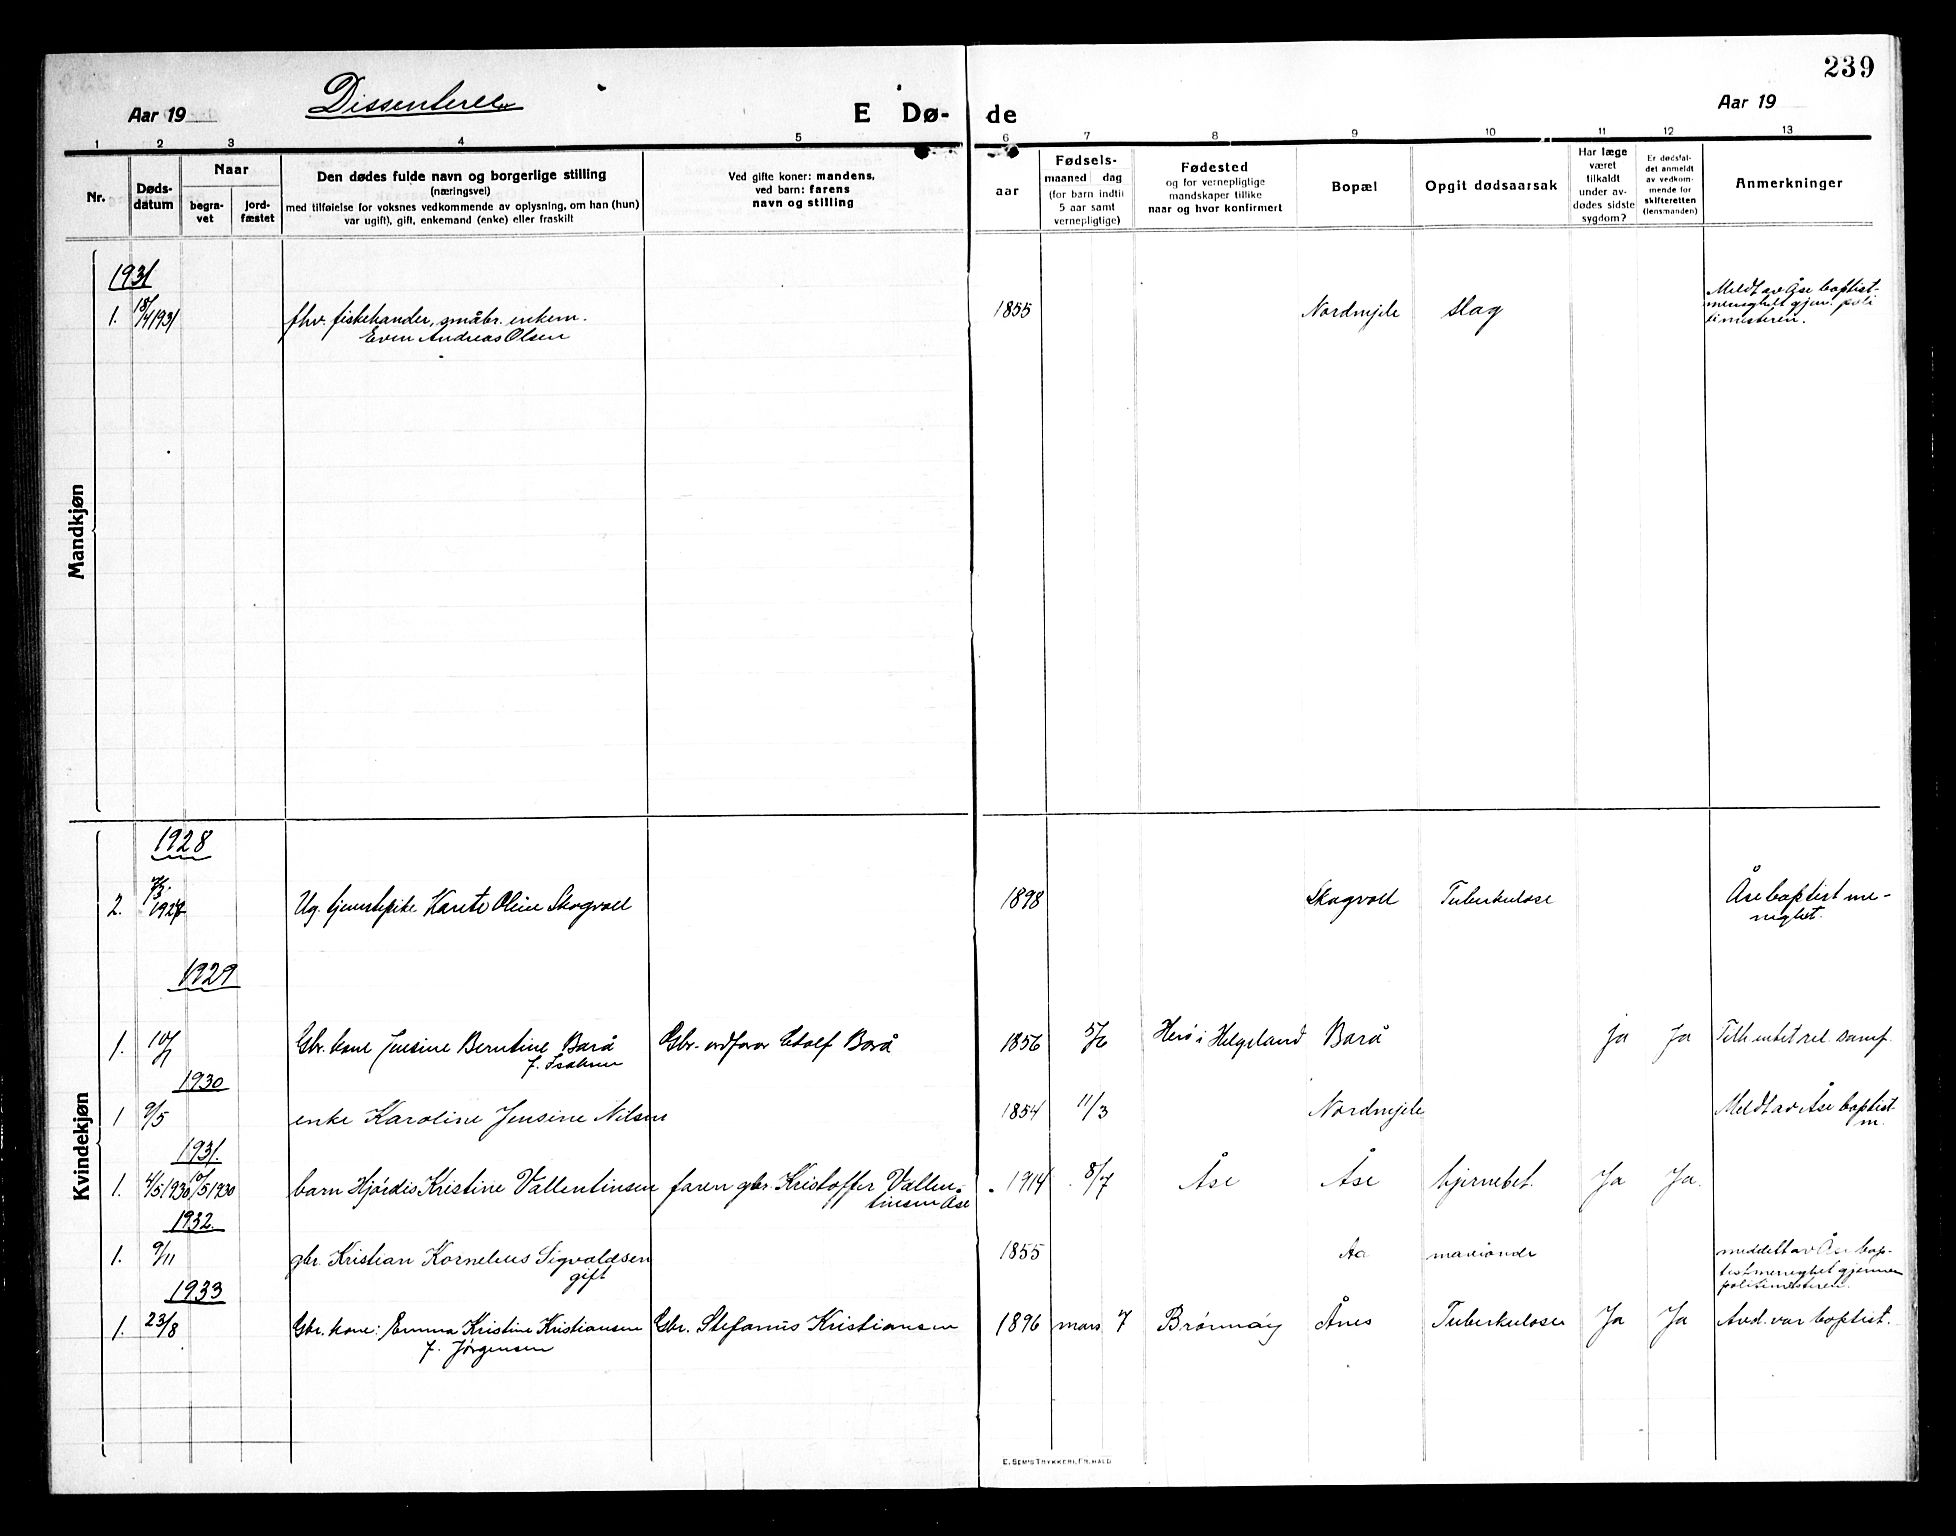 239
Dissentere
Aar 19
E Dø-
de
Aar 19
1 2 3 4 5 6 7 8 9 10 11 12 13
Nr.
Døds-
datum
Naar
begra-
vet
jord-
fæstet
Den dødes fulde navn og borgerlige stilling
(næringsvei)
med tilføielse for voksnes vedkommende av oplysning, om han (hun)
var ugift), gift, enkemand (enke) eller fraskilt
Ved gifte koner: mandens,
ved barn: farens
navn og stilling
aar
Fødsels-
maaned dag
(for barn indtil
5 aar samt
vernepligtige)
Fødested
og for vernepligtige
mandskaper tillike
naar og hvor konfirmert
Bopæl
Opgit dødsaarsak
Har læge
været
tilkaldt
under av-
dødes sidste
sygdom?
Er dødsfal-
det anmeldt
av vedkom-
mende for
skifteretten
(lensmanden)
Anmerkninger
Mandkjøn
1931
1. 18/4 1931 fhv. fiskehander, småbr. enkem. 1855 Nordmjele slag Meldt av Åse baptist-
Even Andreas Olsen menighet gjen. poli
timesteren.
Kvindekjøn
1928
2. Ug. tjenestepike Karete Oline Skogvoll 1898 Skogvoll Tuberkulose Åse baptist me-
nighet.
1929
1. 10/7 Gbr. kone Jensine Berntine Barå Gbr. ordfører Edolf Barå 1856 5/6 Herø i Helgeland Barå ja Ja Tilh. intet rel. samf.
f. Isaksen
1930
1 9/5 enke Karoline Jensine Nilsen 1854 11/3 Nordmjele Meldt av Åse baptist
m.
1931.
1. 4/5 1930 10/5 1930 barn Hjørdis Kristine Vallentinsen faren gbr. Kristoffer Vallen- 1914 8/7 Åse Åse hjernebet. Ja Ja.
tinsen Åse
1932.
1. 9/11 gbr. Kristian Kornelius Sigvaldsen 1855 Aa meddelt av Åse bap-
gift tistmenighet gjennem
politimesteren.
1933
1. 23/8 Gbr. kone: Emma Kristine Kristiansen Gbr. Stefanus Kristiansen 1896 mars 7 Brønnøy Ånes Tuberkulose Ja Ja Avd. var baptist.
f. Jørgensen
E. SEM'S TRYKKERI, FR.HALD